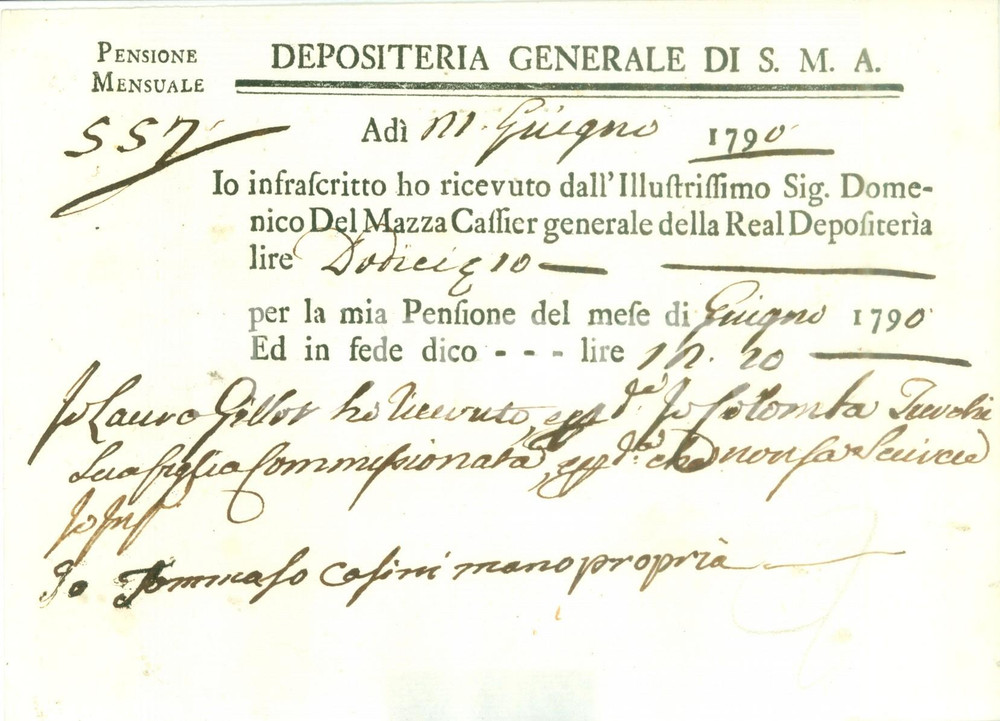 PENSIONE
MENSUALE
DEPOSITERIA GENERALE DI S. M. A.
557
Adì Giugno 1790
Io infraſcritto ho ricevuto dall'Illuſtriſſimo Sig. Dome-
nico Del Mazza Caſſier generale della Real Depoſiterìa
lire Dodici e 10
per la mia Penſione del meſe di Giugno 1790
Ed in fede dico - - - lire
Io Laura ho Ricevuto, Io Colomba
Sua figlia Commissionata, che non sa Scrivere
Io
Io Tommaſo Caſini mano propria